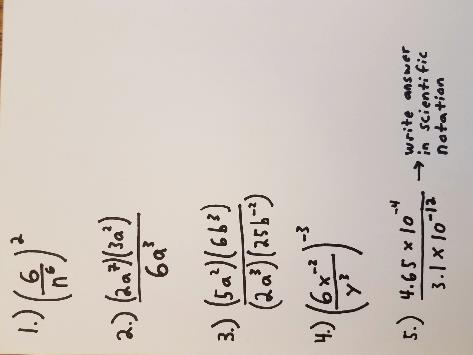 1.) (6/n⁶)²
2.) (2a⁷)(3a²)/6a³
3.) (5a²)(6b³)/(2a³)(25b⁻²)
4.) (6x⁻²/y³)⁻³
5.) 4.65 x 10⁻⁴/3.1 x 10⁻¹² → write answer
in scientific
notation